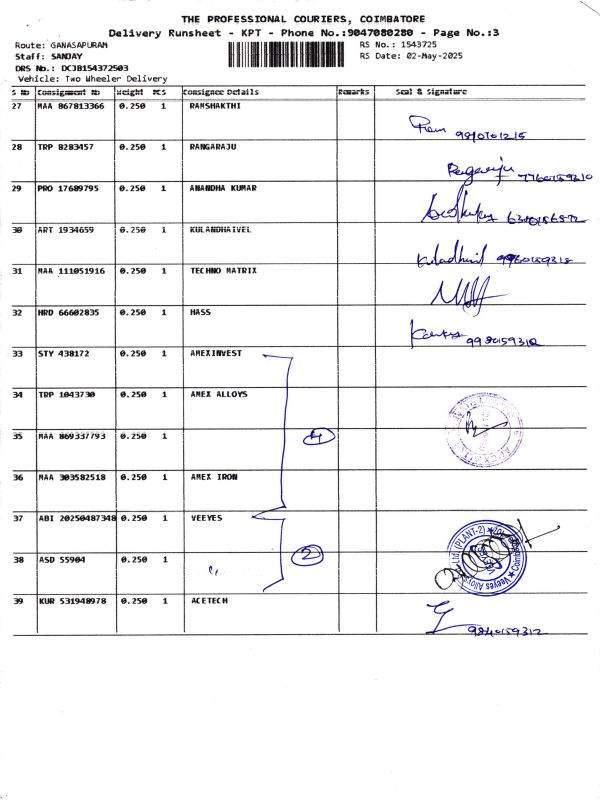 THE PROFESSIONAL COURIERS, COIMBATORE
Delivery Runsheet - KPT - Phone No.:9047080280 - Page No.:3
Route: GANASAPURAM
RS No.: 1543725
Staff: SANJAY
RS Date: 02-May-2025
DRS No.: DCJB154372503
Vehicle: Two Wheeler Delivery
S No Consignment No Weight PCS Consignee Details Remarks Seal & Signature
27 MAA 867813366 0.250 1 RAMSHAKTHI
28 TRP 8283457 0.250 1 RANGARAJU
29 PRO 17689795 0.250 1 ANANDHA KUMAR
30 ART 1934659 0.250 1 KULANDHAIVEL
31 MAA 111051916 0.250 1 TECHNO MATRIX
32 HRD 66602835 0.250 1 HASS
33 STY 438172 0.250 1 AMEXINVEST
34 TRP 1043730 0.250 1 AMEX ALLOYS
35 MAA 869337793 0.250 1
4
36 MAA 303582518 0.250 1 AMEX IRON
37 ABI 20250487348 0.250 1 VEEYES
38 ASD 55904 0.250 1 "
2
Veeyes Alloys Ltd (PLANT-2)
39 KUR 531948978 0.250 1 ACETECH
9840159312